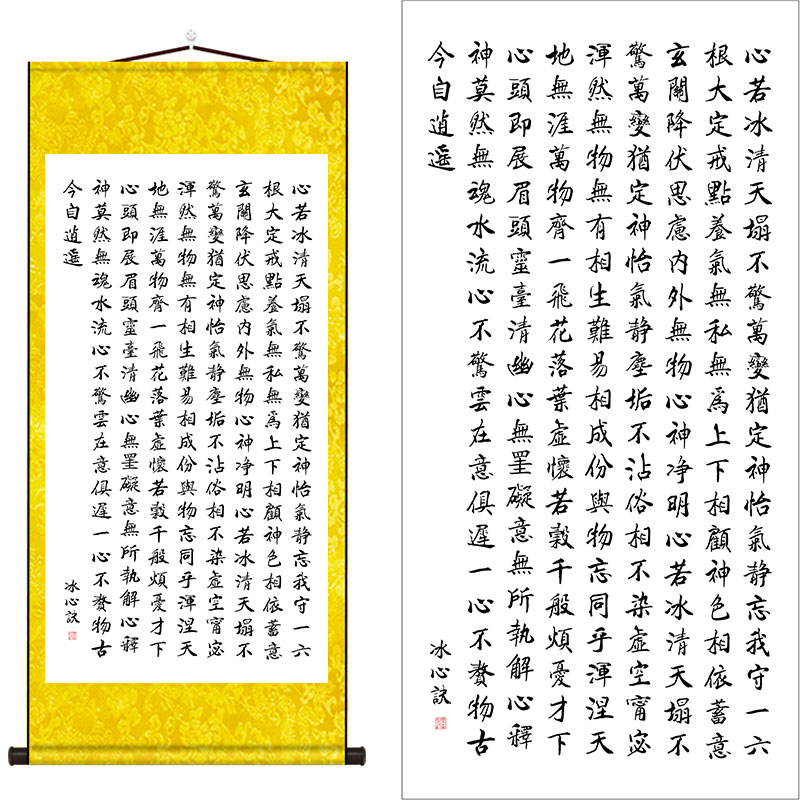 心若冰清天塌不驚萬變猶定神怡氣静忘我守一六
根大定戒點養氣無私無爲上下相顧神色相依蓄意
玄關降伏思慮内外無物心神净明心若冰清天塌不
驚萬變猶定神怡氣静塵垢不沾俗相不染虚空甯宓
渾然無物無有相生難易相成份與物忘同乎渾涅天
地無涯萬物齊一飛花落葉虚懷若穀千般煩憂才下
心頭即展眉頭靈臺清幽心無罣礙意無所執解心釋
神莫然無魂水流心不驚雲在意俱遲一心不贅物古
今自逍遥
冰心訣
心若冰清天塌不驚萬變猶定神怡氣静忘我守一六
根大定戒點養氣無私無爲上下相顧神色相依蓄意
玄關降伏思慮内外無物心神净明心若冰清天塌不
驚萬變猶定神怡氣静塵垢不沾俗相不染虚空甯宓
渾然無物無有相生難易相成份與物忘同乎渾涅天
地無涯萬物齊一飛花落葉虚懷若穀千般煩憂才下
心頭即展眉頭靈臺清幽心無罣礙意無所執解心釋
神莫然無魂水流心不驚雲在意俱遲一心不贅物古
今自逍遥
冰心訣